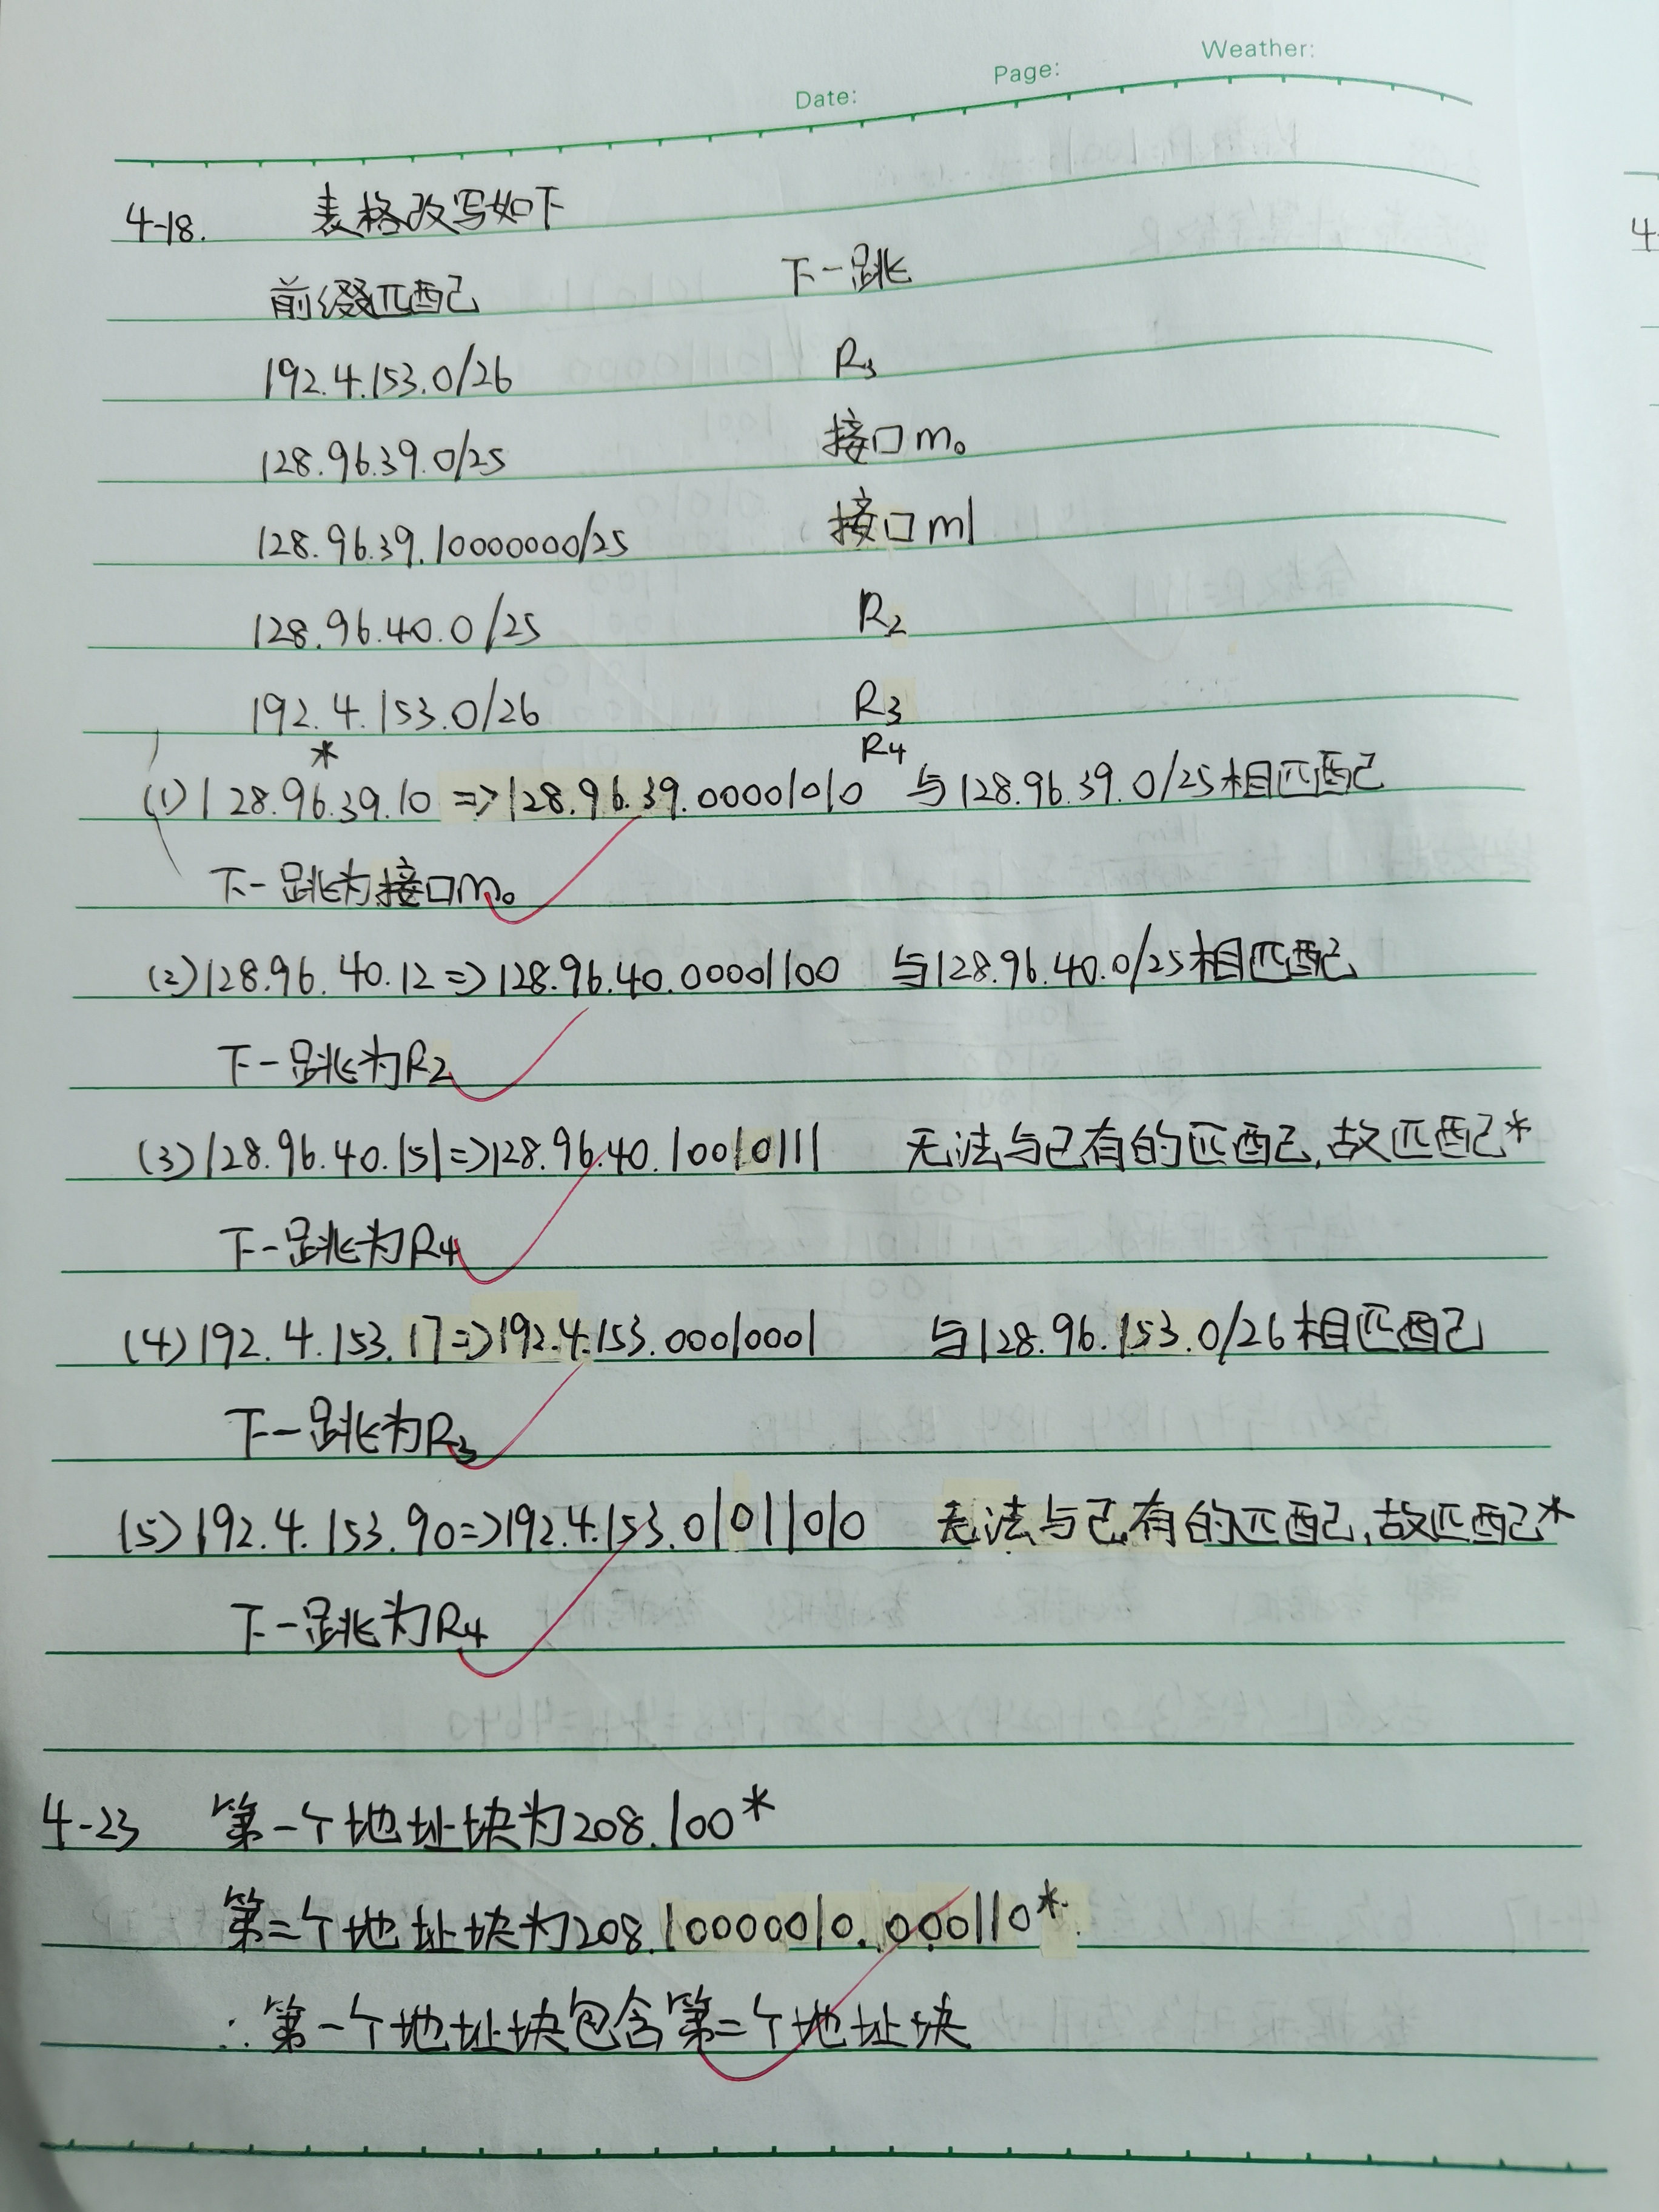 Weather:
Page:
Date:
4-18. 表格改写如下
前缀匹配 下一跳
192.4.153.0/26 R3
128.96.39.0/25 接口m0
128.96.39.10000000/25 接口m1
128.96.40.0/25 R2
192.4.153.0/26 R3
* R4
(1) 128.96.39.10 => 128.96.39.00001010 与128.96.39.0/25相匹配
下一跳为接口m0
(2) 128.96.40.12 => 128.96.40.00001100 与128.96.40.0/25相匹配
下一跳为R2
(3) 128.96.40.151 => 128.96.40.10010111 无法与已有的匹配,故匹配*
下一跳为R4
(4) 192.4.153.17 => 192.4.153.00010001 与128.96.153.0/26相匹配
下一跳为R3
(5) 192.4.153.90 => 192.4.153.01011010 无法与已有的匹配,故匹配*
下一跳为R4
4-23 第一个地址块为208.100*
第二个地址块为208.10000010.000110*
∴第一个地址块包含第二个地址块